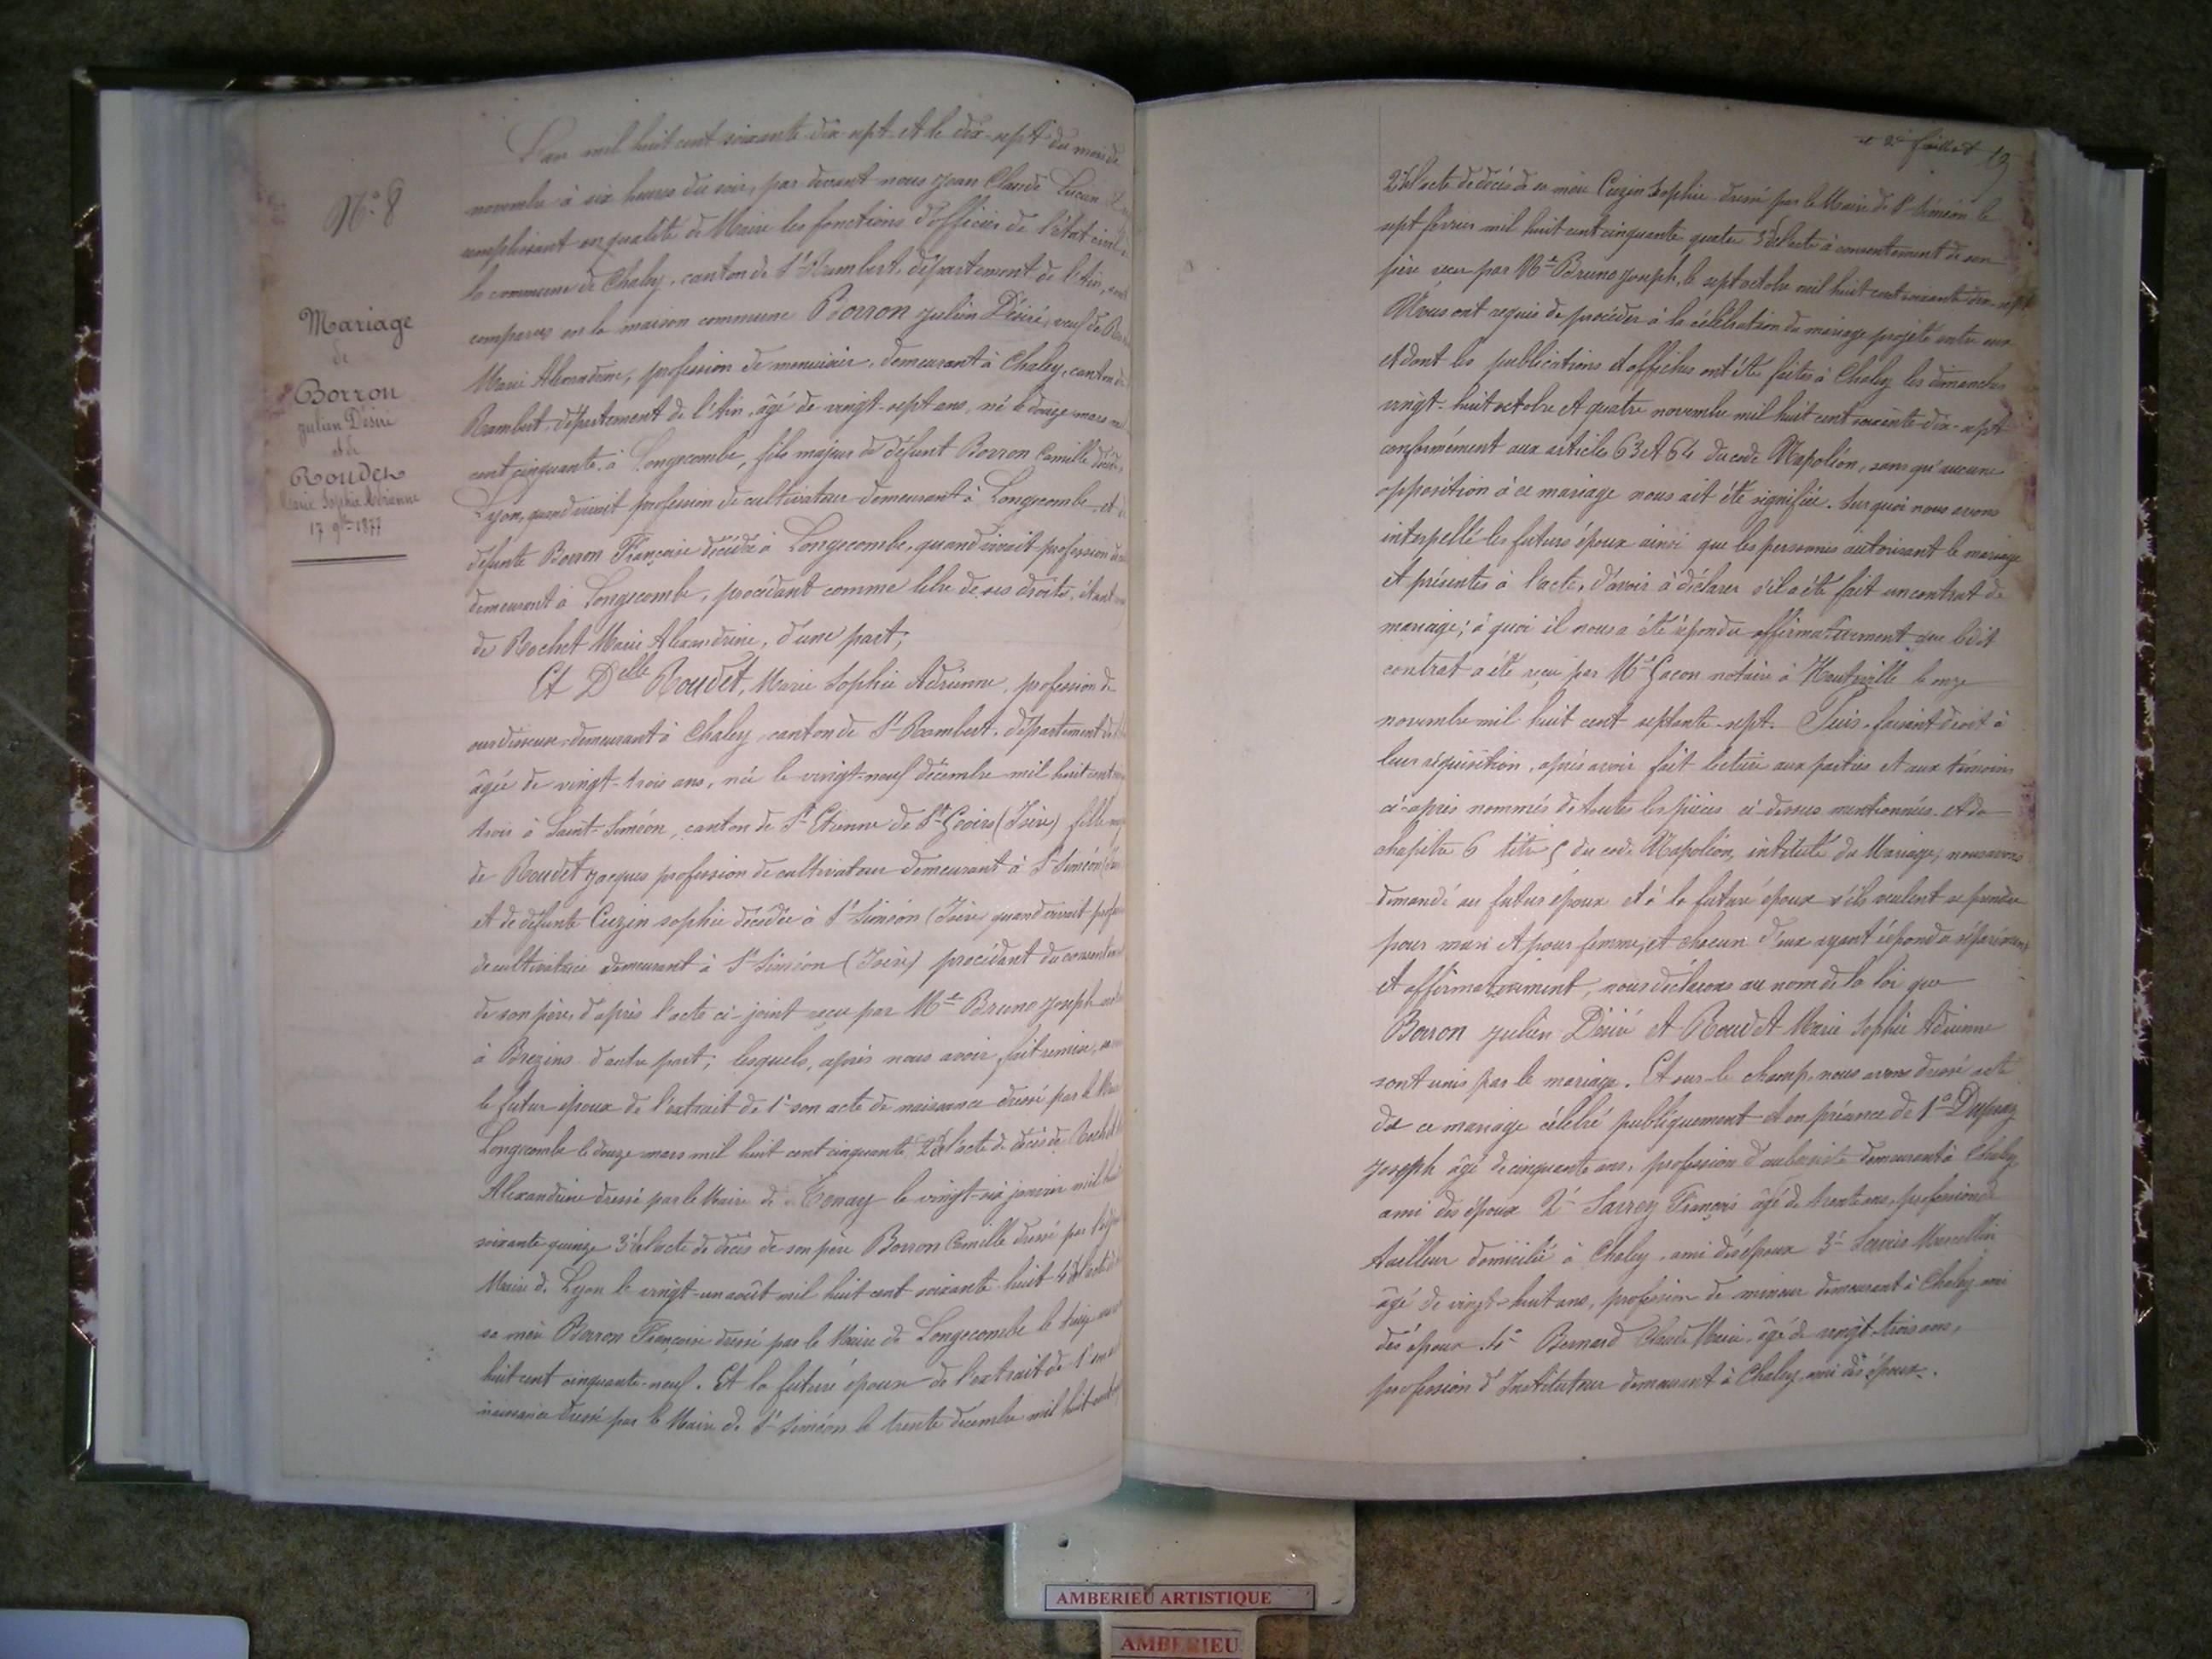 N° 8
Mariage
de
Borron
Julien Désiré
et de
Roudet
Marie Sophie Adrianne
17 9bre 1877
L'an mil huit cent soixante-dix-sept et le dix-sept du mois de
novembre à six heures du soir, par devant nous Jean Claude Lucien
remplissant en qualité de Maire les fonctions d'officier de l'état civil
la commune de Chaley, canton de St Rambert, département de l'Ain, sont
comparus en la maison commune Borron Julien Désiré, veuf de
Marie Alexandrine, profession de menuisier, demeurant à Chaley, canton de
Rambert, département de l'Ain, âgé de vingt-sept ans, né le douze mars mil
cent cinquante, à Longecombe, fils majeur de défunt Borron Camille décédé
Lyon, quand vivait profession de cultivateur demeurant à Longecombe, et
défunte Borron Françoise décédée à Longecombe, quand vivait profession
demeurant à Longecombe, procédant comme libre de ses droits, étant
de Rochet Marie Alexandrine, d'une part;
Et Delle Roudet, Marie Sophie Adrienne, profession de
ourdisseuse demeurant à Chaley, canton de St Rambert, département de
âgée de vingt-trois ans, née le vingt-neuf décembre mil huit cent
trois à Saint-Siméon, canton de St Etienne de St Geoirs (Isère) fille
de Roudet Jacques profession de cultivateur demeurant à St Siméon
et de défunte Cuzin Sophie décédée à St Siméon (Isère quand vivait
de cultivatrice demeurant à St Siméon (Isère) procédant du
de son père, d'après l'acte ci-joint reçu par Me Bruno Joseph
à Brezins d'autre part; lesquels, après nous avoir fait remise,
le futur époux de l'extrait de 1° son acte de naissance dressé par le
Longecombe le douze mars mil huit cent cinquante 2° de l'acte de décès de Rochet
Alexandrine dressé par le Maire de Tenay le vingt-six janvier mil
soixante quinze 3° de l'acte de décès de son père Borron Camille dressé par
Maire de Lyon le vingt-un août mil huit cent soixante huit 4° de l'acte de
sa mère Borron Françoise dressé par le Maire de Longecombe le
huit cent cinquante-neuf. Et la future épouse de l'extrait de 1°
naissance dressé par le Maire de St Siméon le trente décembre mil huit cent
et 2e feuillet 19
2° de l'acte de décès de sa mère Cuzin Sophie dressé par le Maire de St Siméon le
sept février mil huit cent cinquante quatre 3° de l'acte à consentement de son
père reçu par Me Bruno Joseph, le sept octobre mil huit cent soixante dix-sept
Nous ont requis de procéder à la célébration du mariage projeté entre eux
et dont les publications et affiches ont été faites à Chaley les dimanches
vingt-huit octobre et quatre novembre mil huit cent soixante-dix-sept
conformément aux articles 63 et 64 du code Napoléon, sans qu'aucune
opposition à ce mariage nous ait été signifiée. Sur quoi nous avons
interpellé les futurs époux ainsi que les personnes autorisant le mariage
et présentes à l'acte, d'avoir à déclarer s'il a été fait un contrat de
mariage; à quoi il nous a été répondu affirmativement que ledit
contrat a été reçu par Me Gacon notaire à Hauteville le onze
novembre mil huit cent septante-sept. Puis, faisant droit à
leur réquisition, après avoir fait lecture aux parties et aux témoins
ci-après nommés de toutes les pièces ci-dessus mentionnées et du
chapitre 6 titre 5 du code Napoléon, intitulé du Mariage, nous avons
demandé au futur époux et à la future épouse s'ils veulent se prendre
pour mari et pour femme, et chacun d'eux ayant répondu séparément
et affirmativement, nous déclarons au nom de la loi que
Borron Julien Désiré et Roudet Marie Sophie Adrienne
sont unis par le mariage. Et sur-le-champ, nous avons dressé acte
de ce mariage célébré publiquement et en présence de 1° Dupraz
Joseph âgé de cinquante ans, profession d'aubergiste demeurant à Chaley
ami des époux 2° Sarrey François âgé de trente ans, profession de
tailleur domicilié à Chaley, ami des époux 3° Marcellin
âgé de vingt-huit ans, profession de mineur demeurant à Chaley ami
des époux 4° Bernard Claude Marie, âgé de vingt-trois ans,
profession d'Instituteur demeurant à Chaley, ami des époux.
AMBERIEU ARTISTIQUE
AMBERIEU